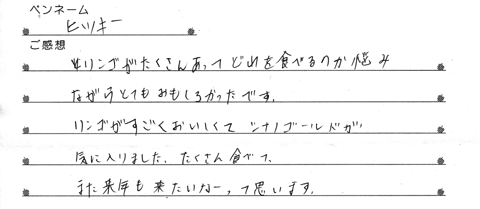 ペンネーム
ヒッキー
ご感想
リンゴがたくさんあってどれを食べるのか悩み
ながらとてもおもしろかったです。
リンゴがすごくおいしくてシナノゴールドが
気に入りました。たくさん食べて、
また来年も来たいなーって思います。